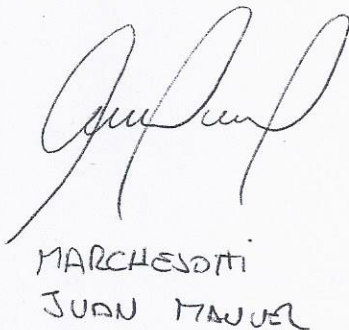 MARCHESOTTI
JUAN MANUEL